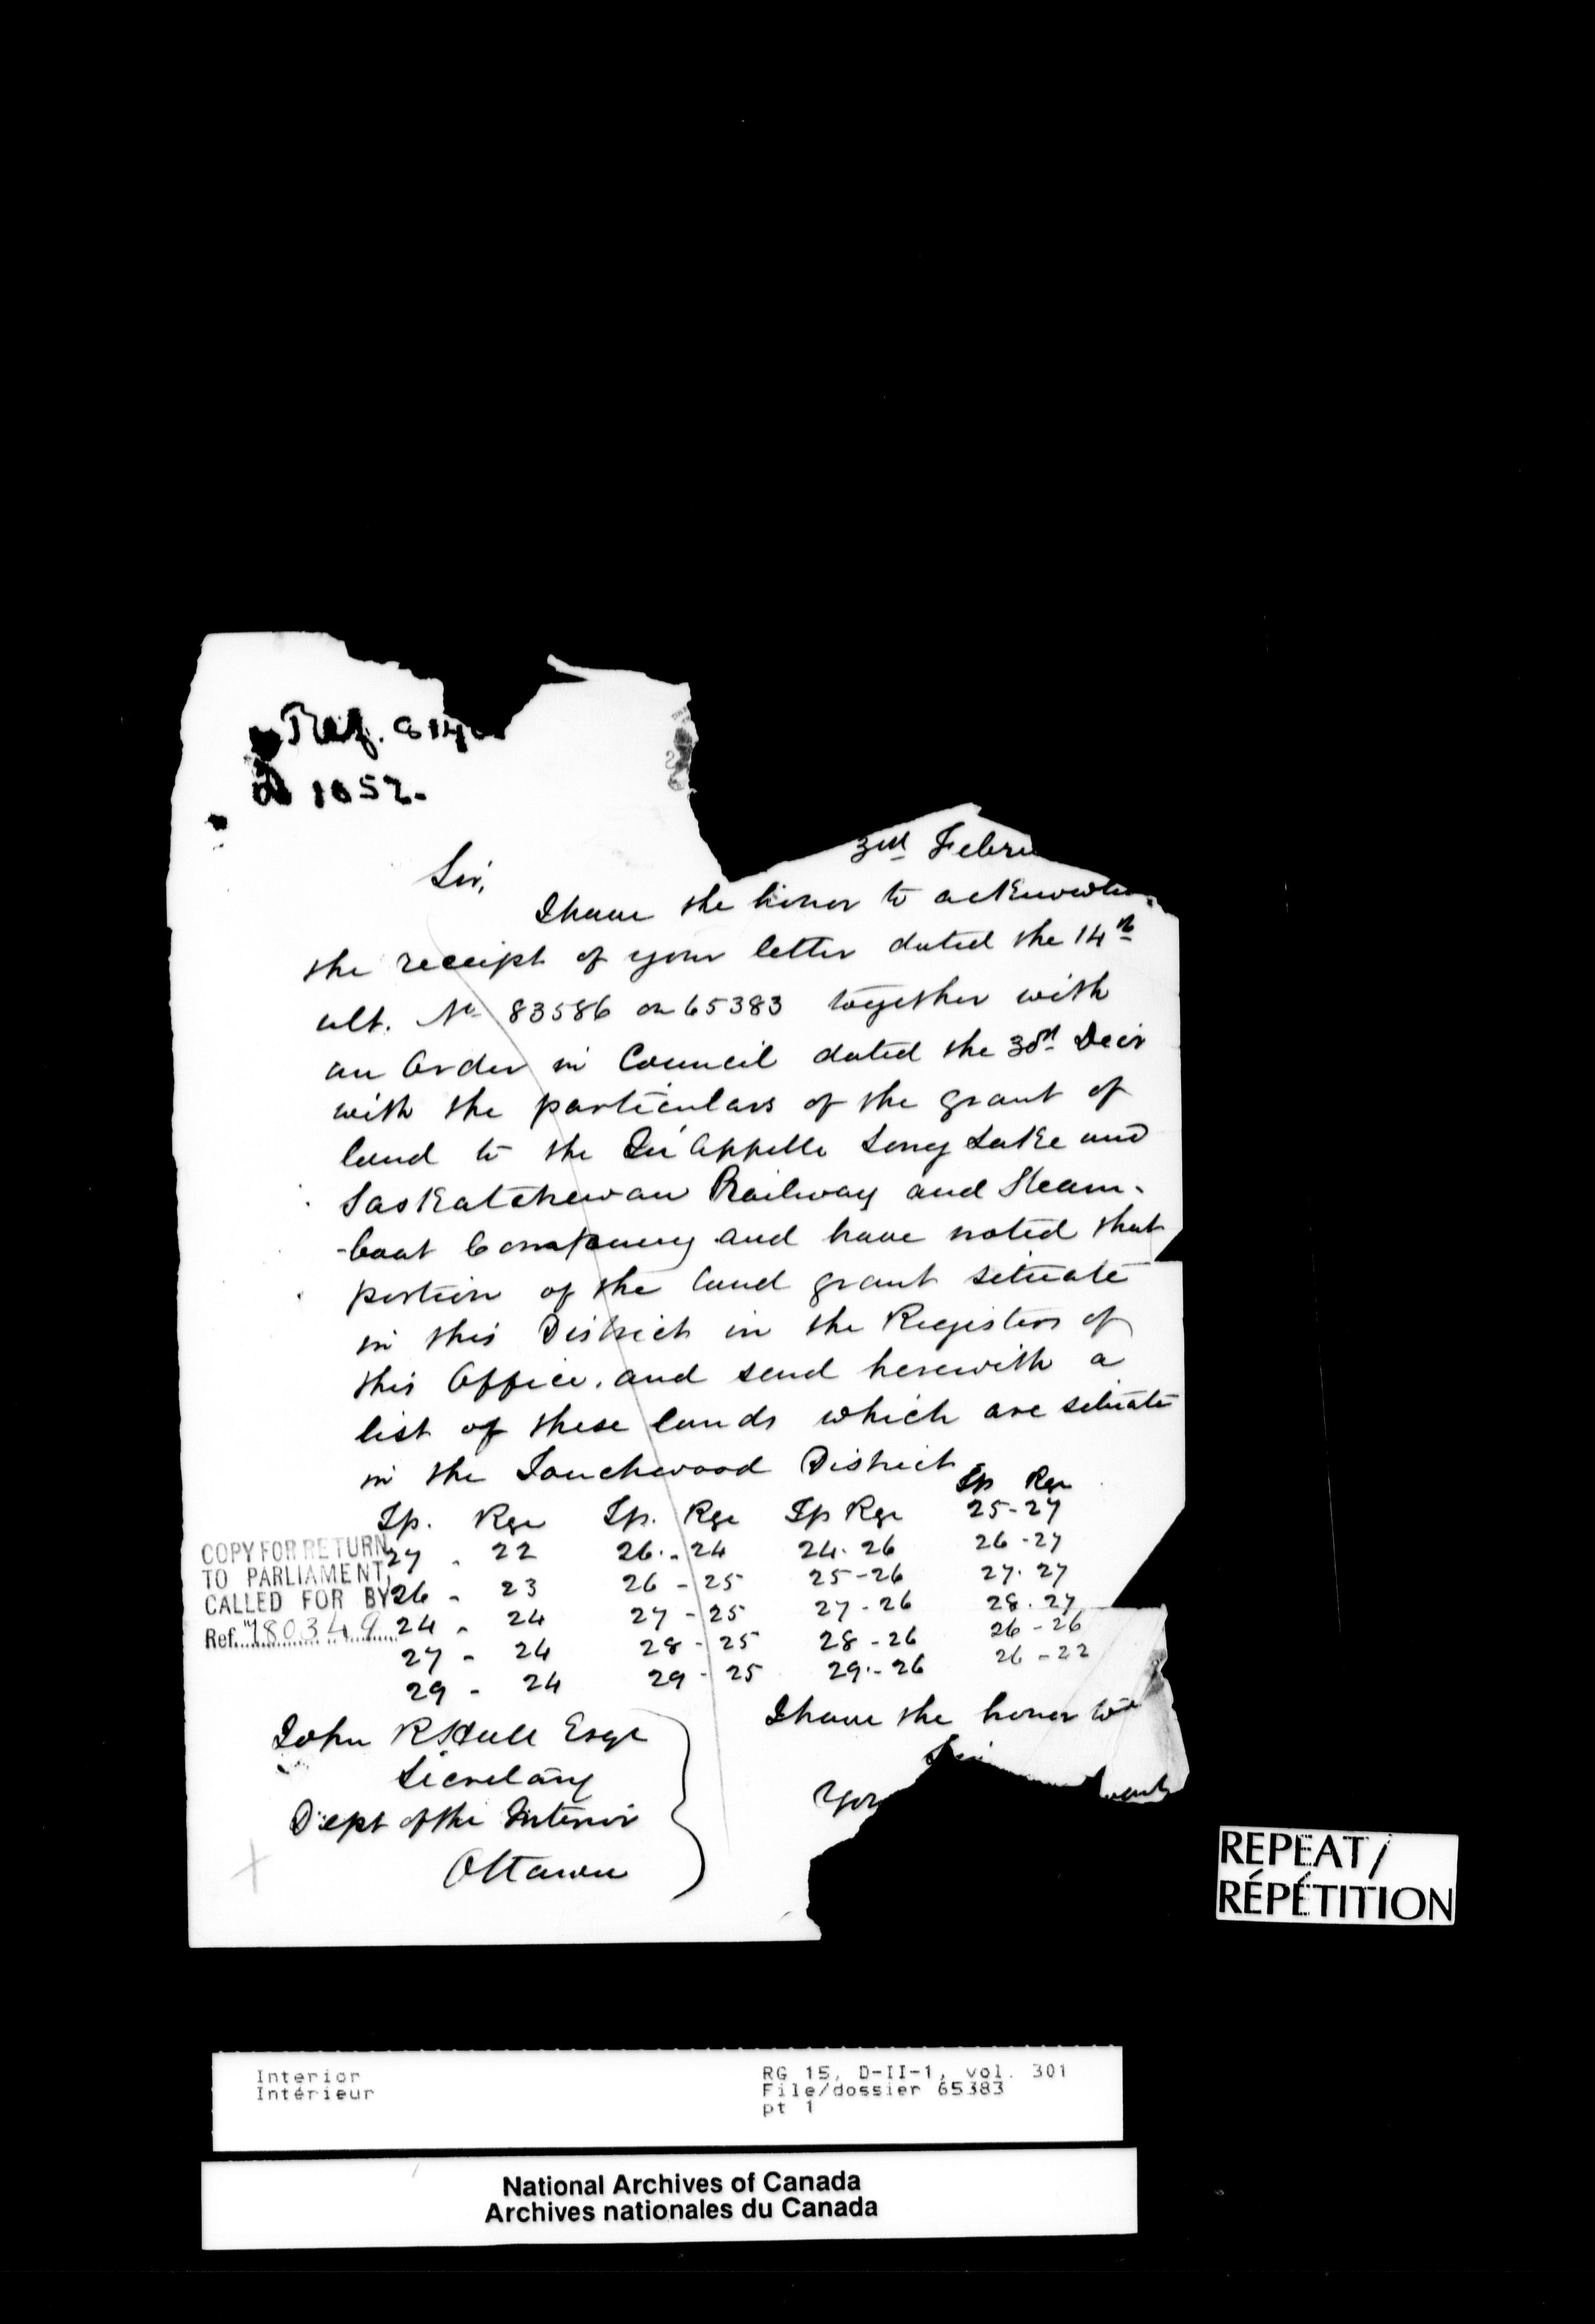 Ref. 814
1052.
3rd Febru
Sir,
I have the honor to acknowled
the receipt of your letter dated the 14th
ult. No 83586 on 65383 together with
an Order in Council dated the 30th Decr
with the particulars of the grant of
land to the Qu'Appelle Long Lake and
Saskatchewan Railway and Steam-
-boat Company and have noted that
portion of the land grant situate
in this District in the Registers of
this Office. and send herewith a
list of these lands which are situate
in the Touchwood District
Tp. Rge Tp. Rge Tp Rge Tp Rge
27 - 22 26 - 24 24 - 26 25 - 27
26 - 23 26 - 25 25 - 26 26 - 27
24 - 24 27 - 25 27 - 26 27 - 27
27 - 24 28 - 25 28 - 26 28 - 27
29 - 24 29 - 25 29 - 26 26 - 26
26 - 22
COPY FOR RETURN
TO PARLIAMENT,
CALLED FOR BY
Ref. 180349
I have the honor to
Sir
You
John R Hall Esqr
Secretary
Dept of the Interior
Ottawa
REPEAT /
RÉPÉTITION
Interior
Intérieur
RG 15, D-II-1, vol. 301
File/dossier 65383
pt 1
National Archives of Canada
Archives nationales du Canada